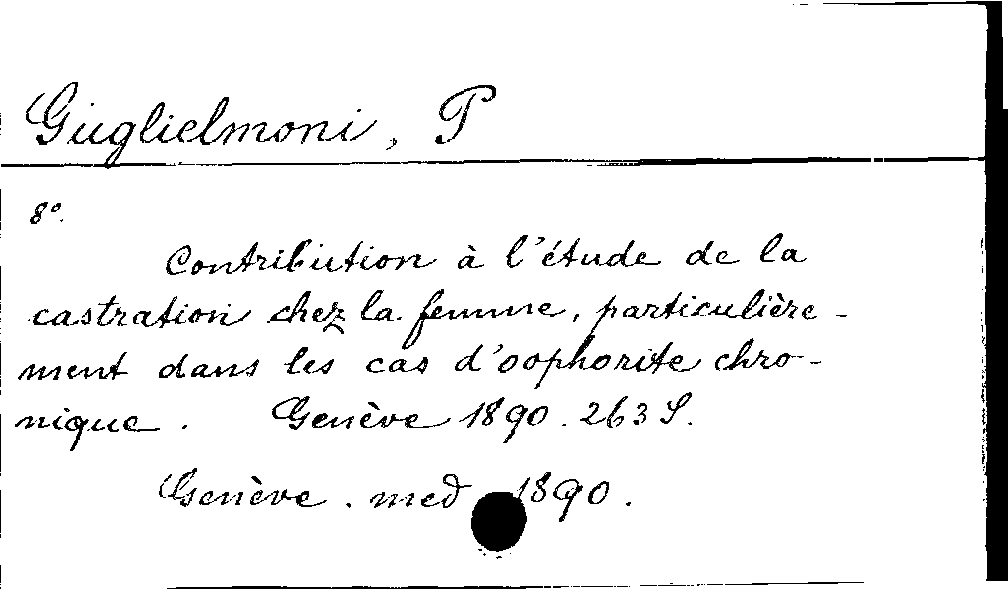 Guglielmoni, P
8º.
Contribution à l'étude de la
castration chez la femme, particulière-
ment dans les cas d'oophorite chro-
nique. Genève 1890. 263 S.
Genève. med 1890.